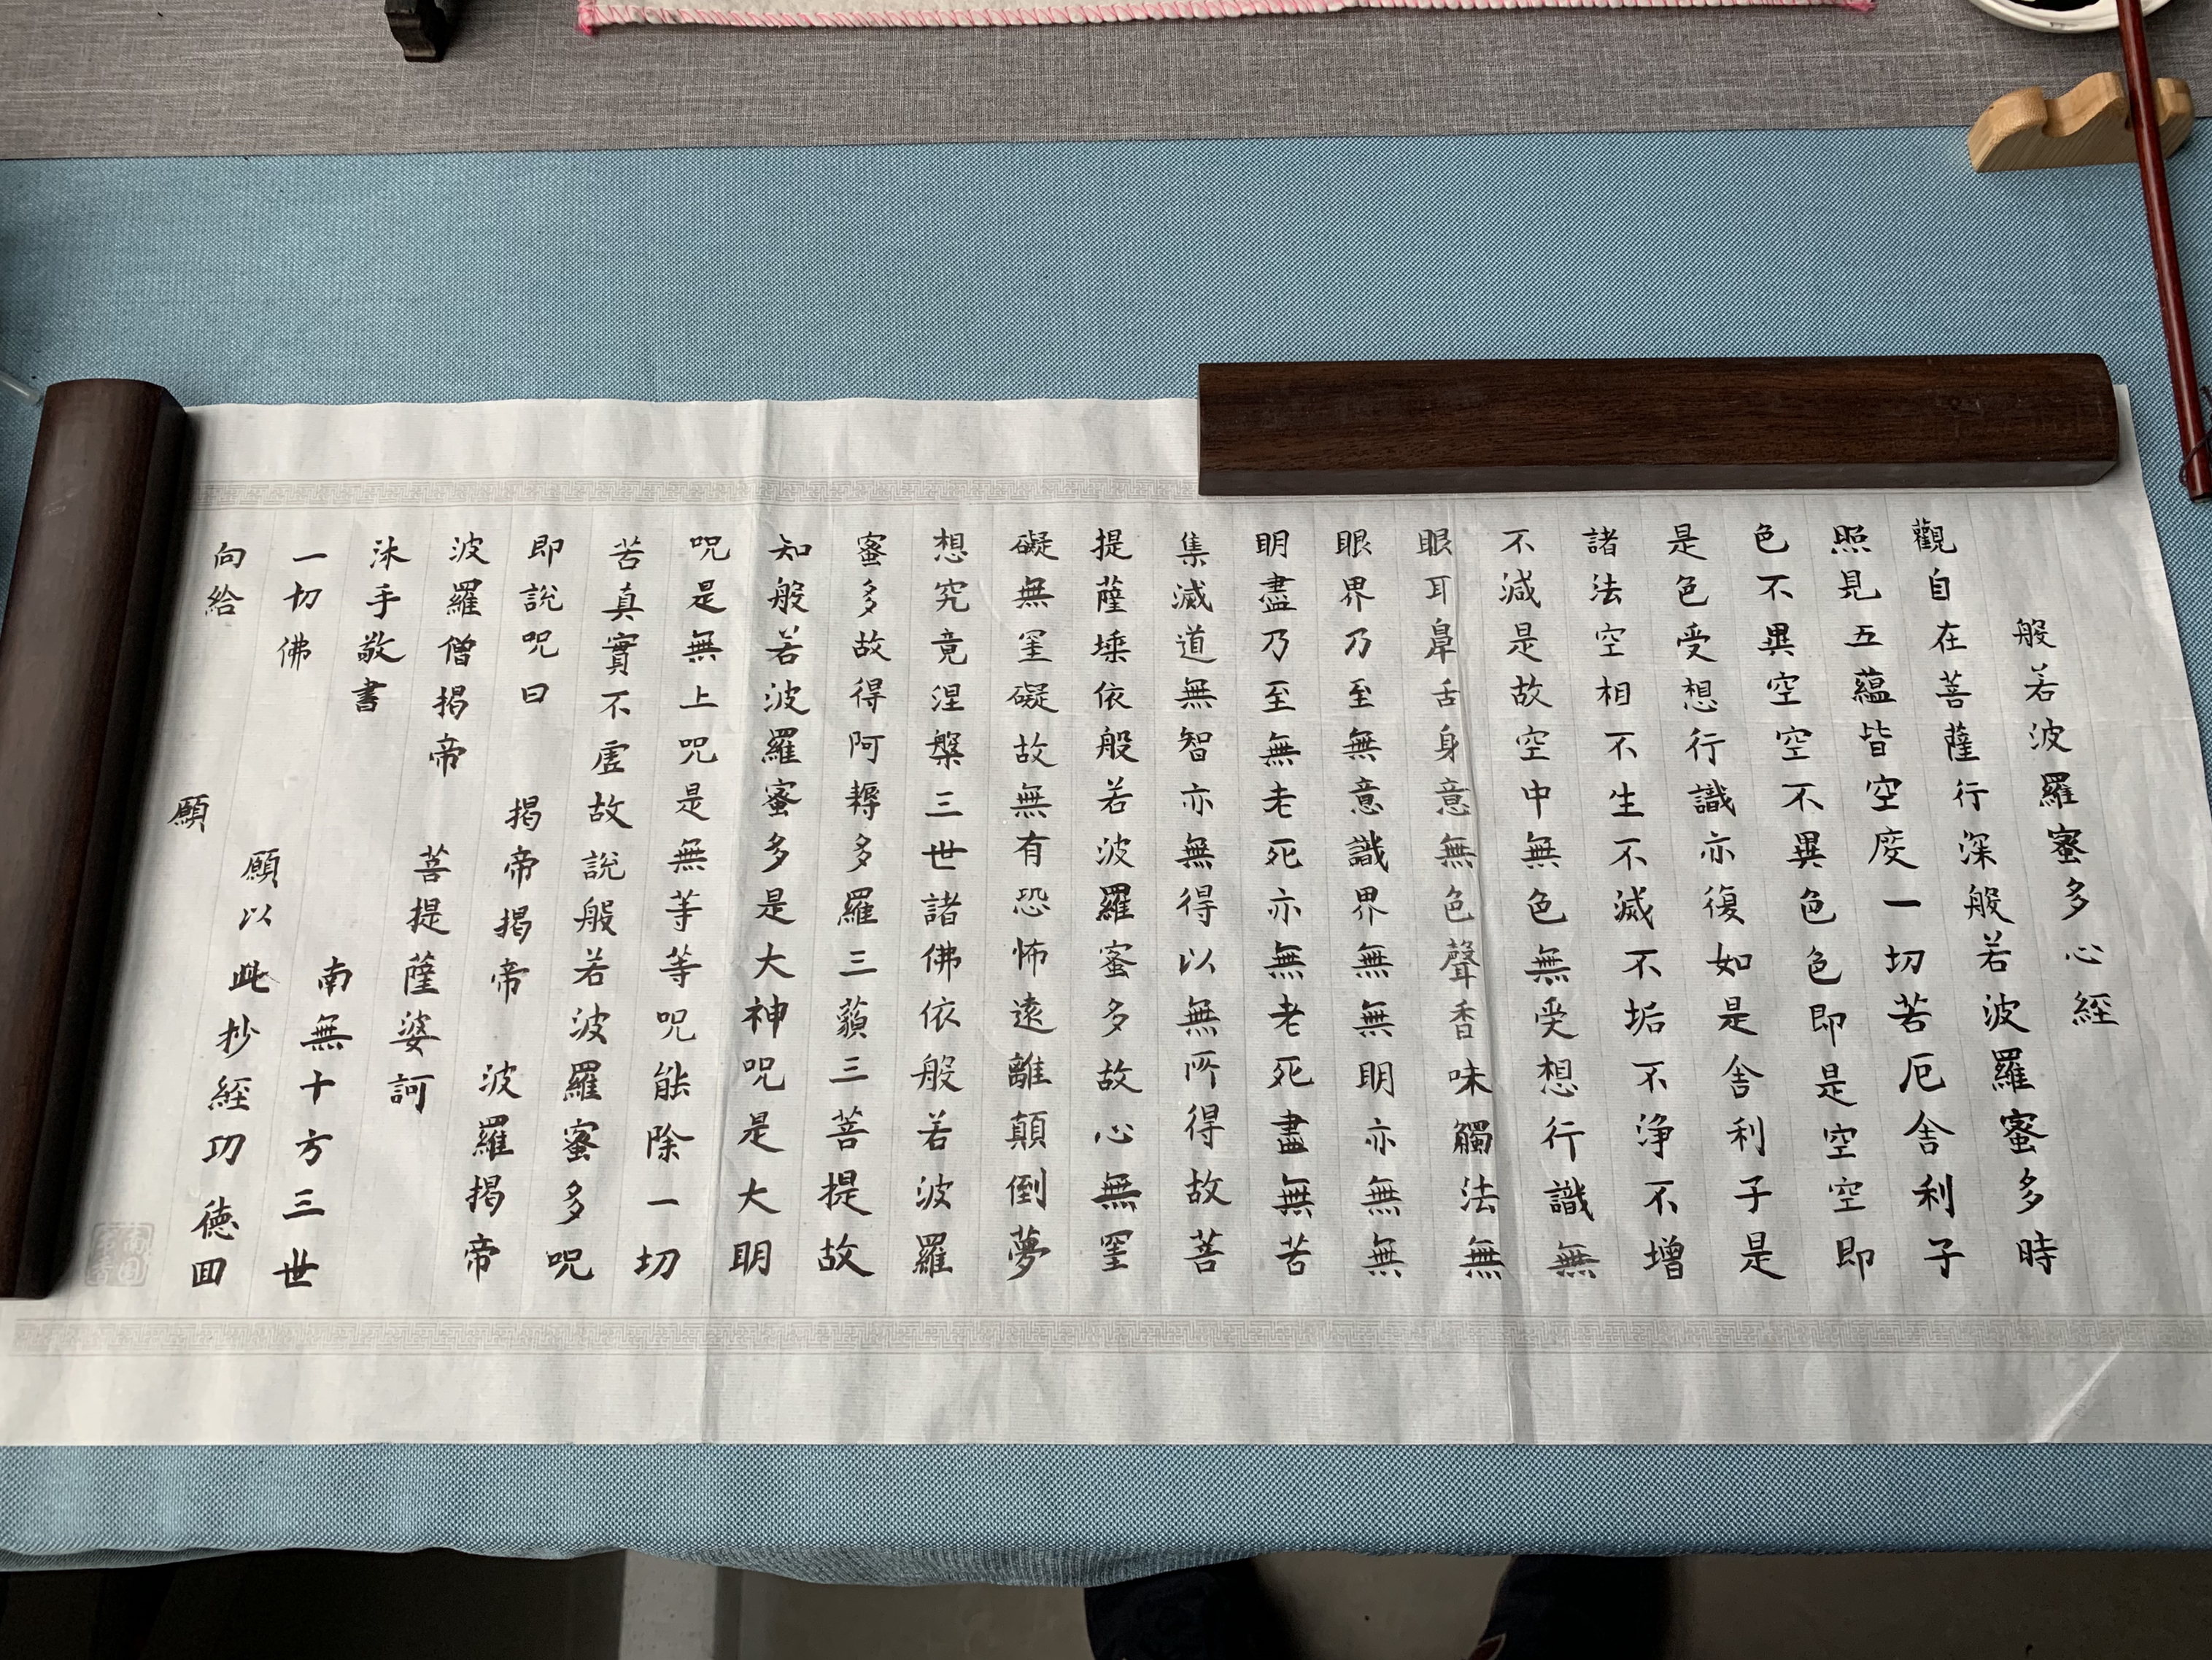 般若波羅蜜多心經
觀自在菩薩行深般若波羅蜜多時
照見五蘊皆空度一切苦厄舍利子
色不異空空不異色色即是空空即
是色受想行識亦復如是舍利子是
諸法空相不生不滅不垢不浄不增
不減是故空中無色無受想行識無
眼耳鼻舌身意無色聲香味觸法無
眼界乃至無意識界無無明亦無無
明盡乃至無老死亦無老死盡無苦
集滅道無智亦無得以無所得故菩
提薩埵依般若波羅蜜多故心無罣
礙無罣礙故無有恐怖遠離顛倒夢
想究竟涅槃三世諸佛依般若波羅
蜜多故得阿耨多羅三藐三菩提故
知般若波羅蜜多是大神咒是大明
咒是無上咒是無等等咒能除一切
苦真實不虛故說般若波羅蜜多咒
即說咒曰 揭帝揭帝 波羅揭帝
波羅僧揭帝 菩提薩婆訶
沐手敬書 南無十方三世
一切佛 願以此抄經功德回
向給 願